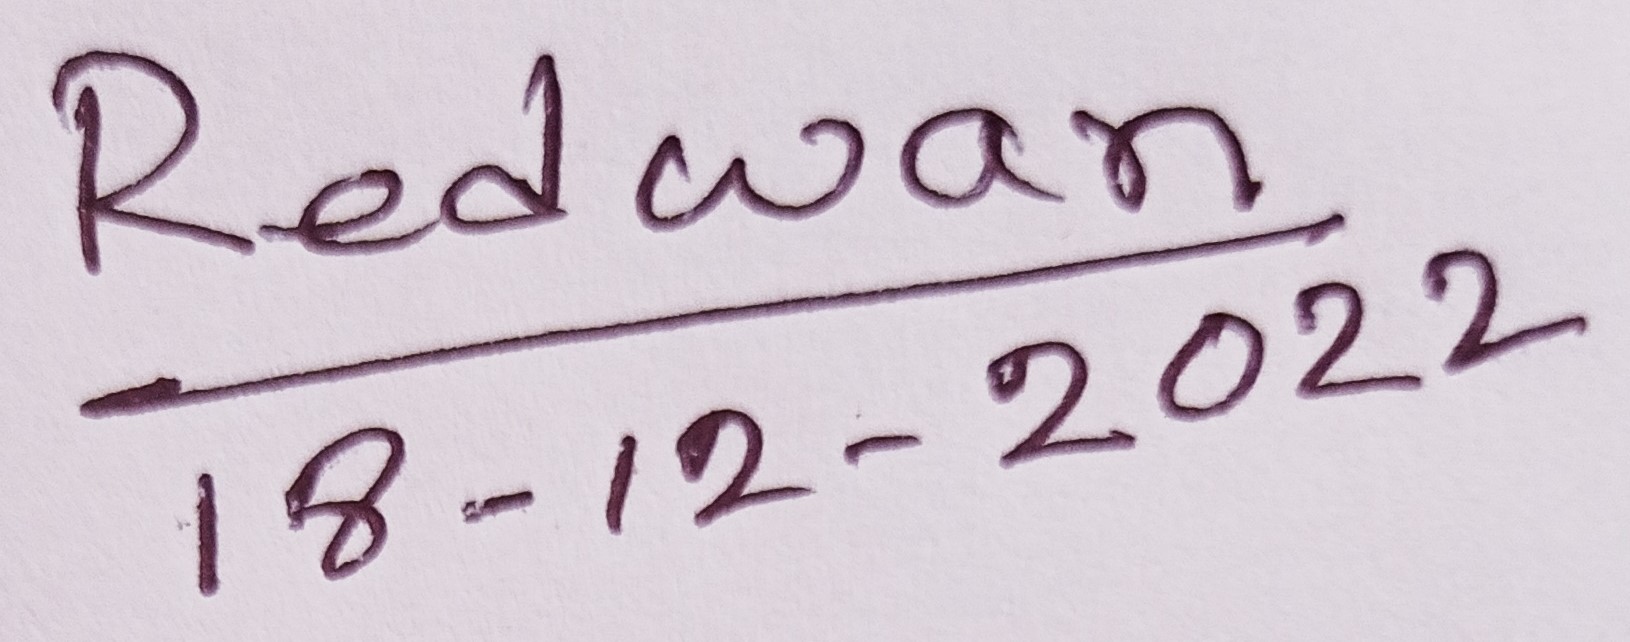 Redwan
18-12-2022